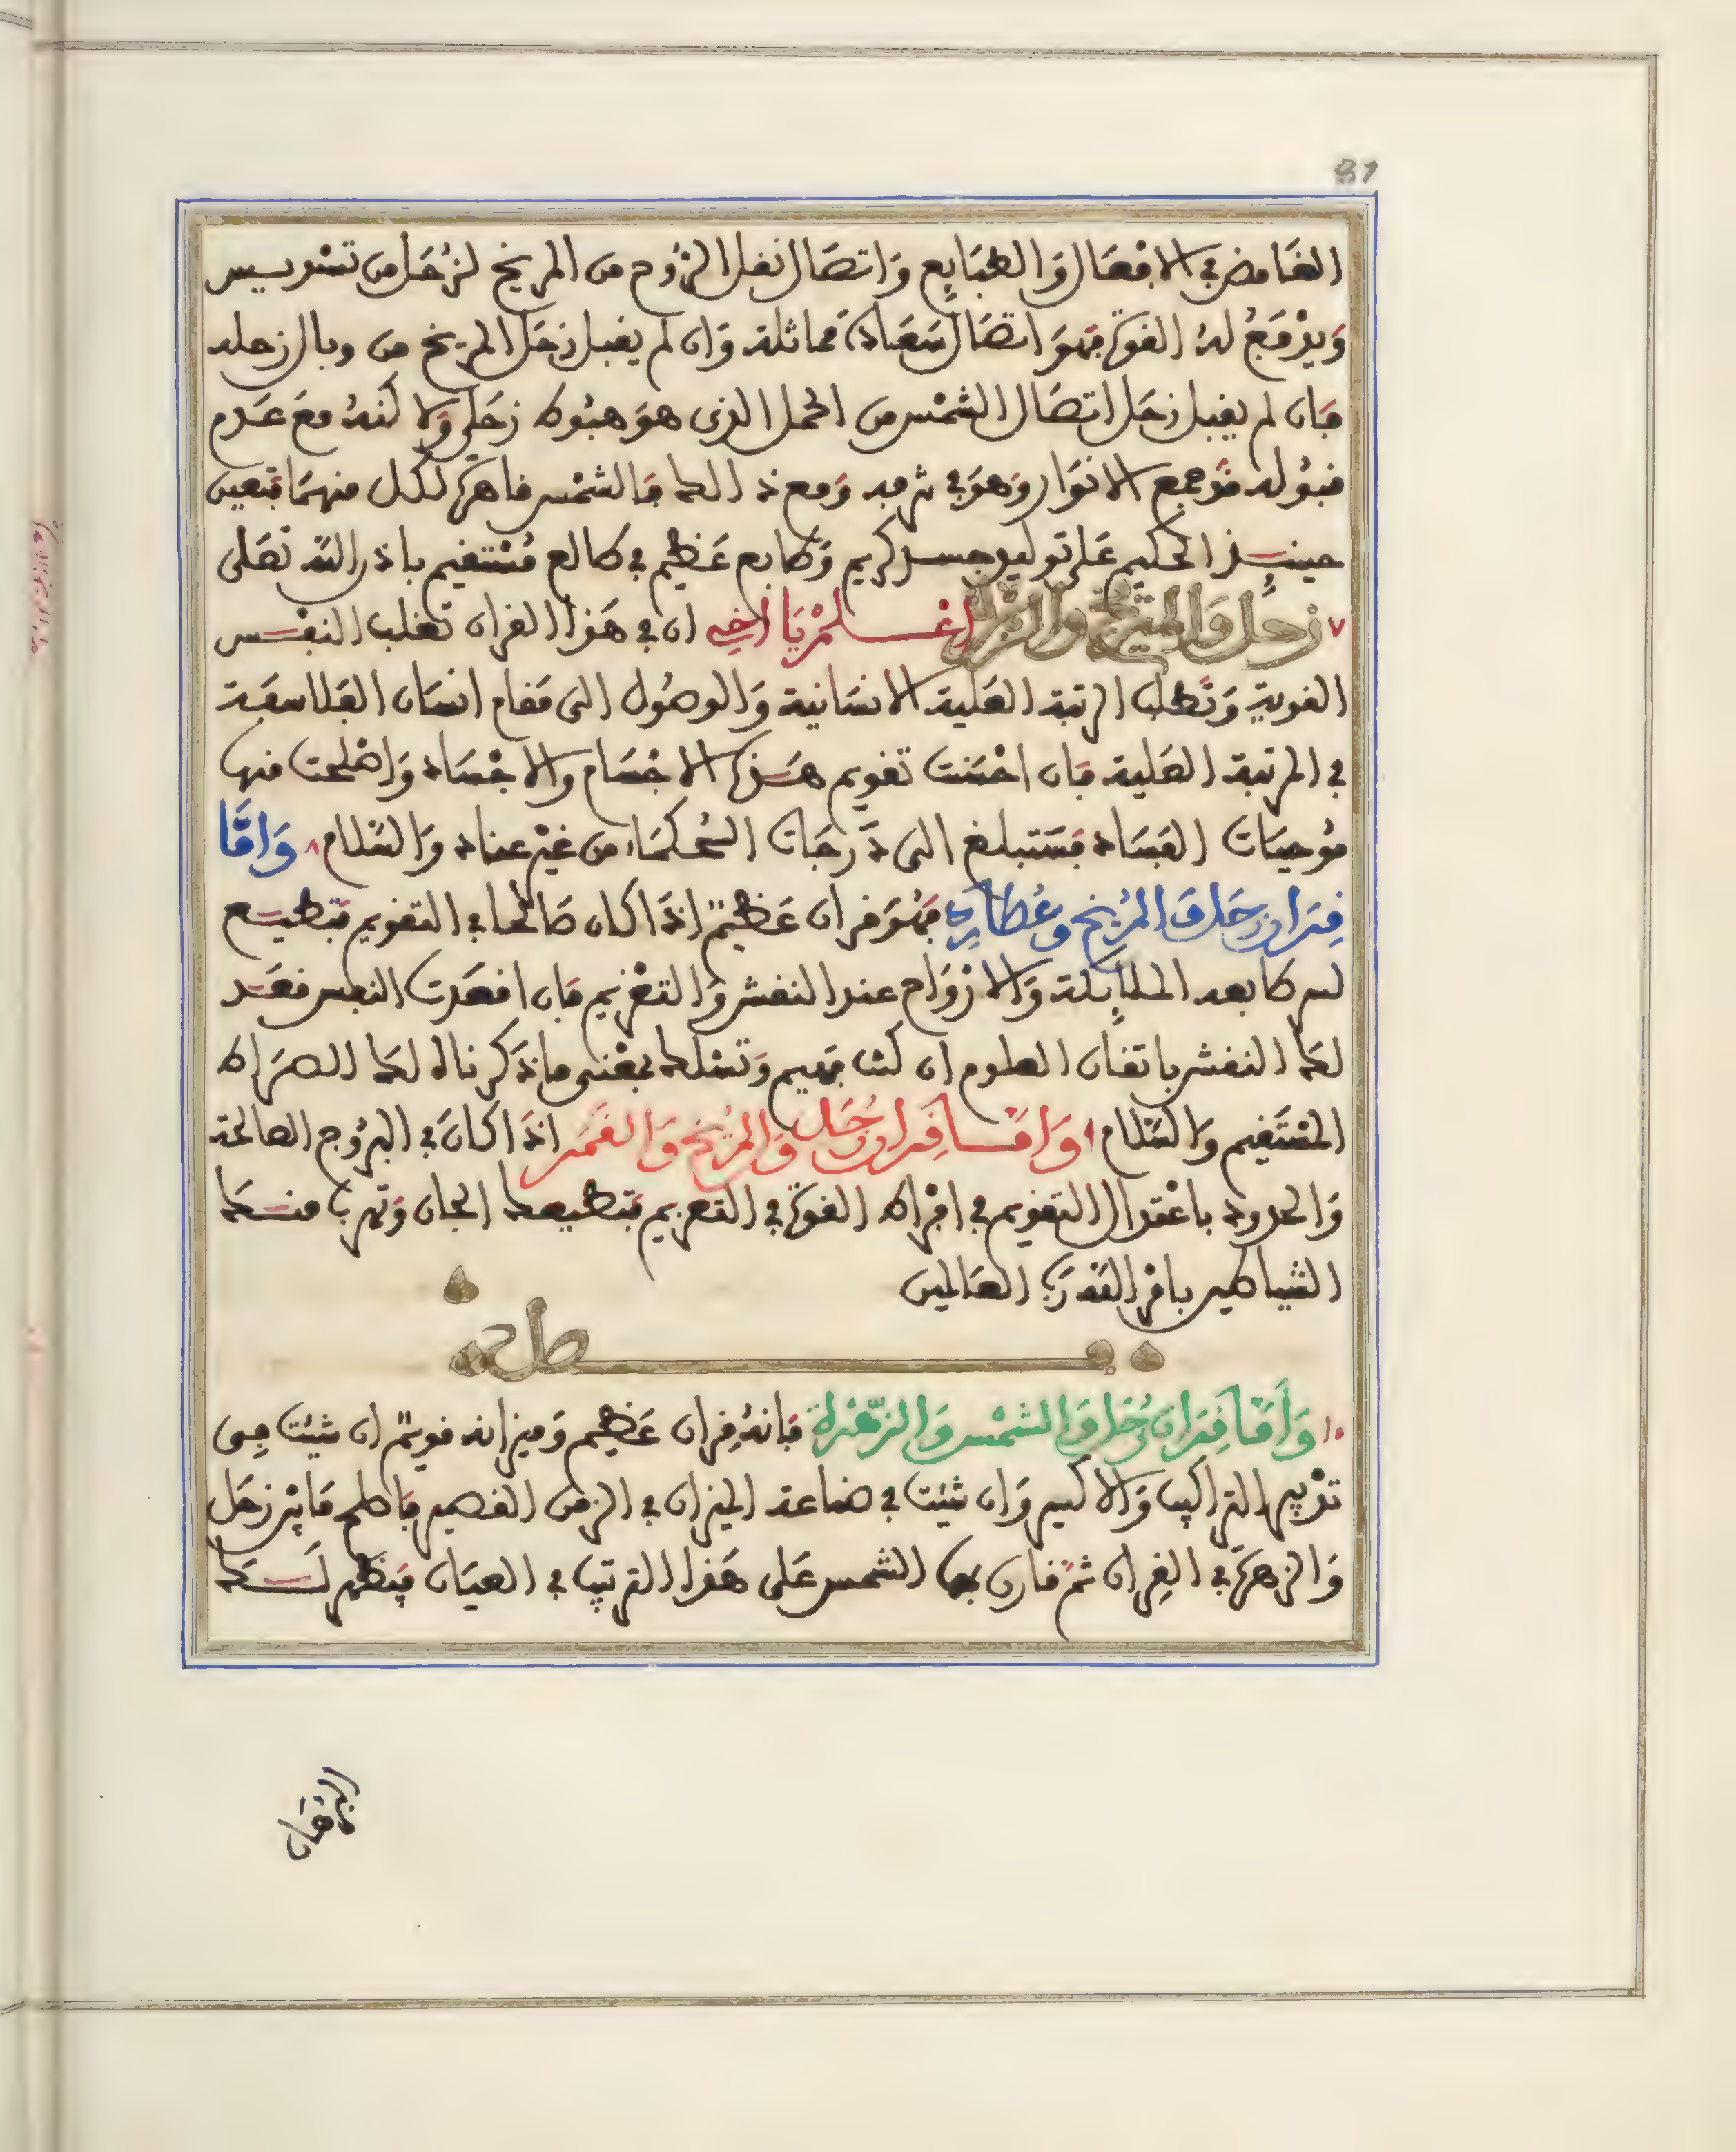 87
الغامض في الافعال والطبايع واتصال نقل الروح من المريخ لزحل من تسديس
ويدفع له القوة فهو اتصال سعادة مماثلة وان لم يقبل زحل المريخ من وبال زحله
فان لم يقبل زحل اتصال الشمس من الحمل الذى هو هبوط زحل ولا كنه مع عدم
قبوله فوجمع الانوار وهو في شرفه ومع ذالك فالشمس قاهرة لكل منهما فتعين
حينئذ الحكيم على توليد جسد كريم وطابع عظيم في طالع مستقيم باذن الله تعلى
٧ زحل والمريخ والزهرة اعلم يا اخي ان في هذا القران تغلب النفس
القوية وتطلب الرتبة العلية الانسانية والوصول الى مقام انسان الفلاسفة
في المرتبة العلية فان احسنت تقويم هذه الاجسام والاجساد واصلحت منها
موجبات الفساد فستبلغ الى درجات الحكماء من غير عناد والسلام ٨ واما
قران زحل والمريخ وعطارد فهو قران عظيم اذا كان صالحا في التقويم فتطيع
لسر طابعه الملايكة والارواح عند النقش والتعزيم فان افعدت النفس فعد
لها النقش باتقان العلوم ان كنت فهيم وتسلك بمعنى ما ذكرناه لك الصراط
المستقيم والسلام ٩ واما قران زحل والمريخ والقمر اذا كان في البروج الصالحة
والحدود باعتدال التقويم في افراط القوة في التعزيم فتطيعك الجان وتهرب منك
الشياطير باذن الله رب العالمين
فصل
١٠ واما قران زحل والشمس والزهرة فانه قران عظيم وميزانه قويم ان شئت في
تدبير التراكيب والاكسير وان شئت في صناعة الميزان في الزمن القصير فاصلح ما بين زحل
والزهرة في القران ثم قارن بها الشمس على هذا الترتيب في العيان فيظهر لك
البرهان